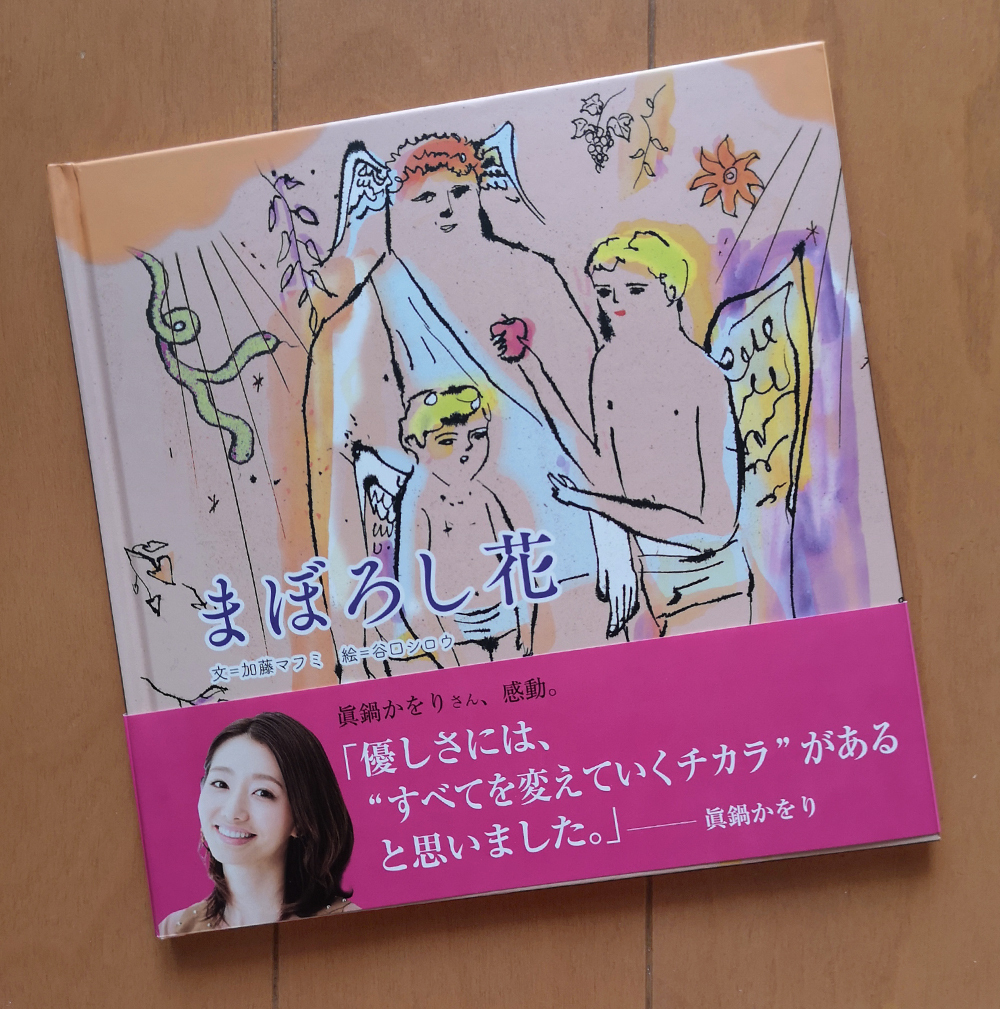 まぼろし花
文=加藤マフミ 絵=谷口シロウ
眞鍋かをりさん、感動。
「優しさには、
“すべてを変えていくチカラ”がある
と思いました。」——眞鍋かをり